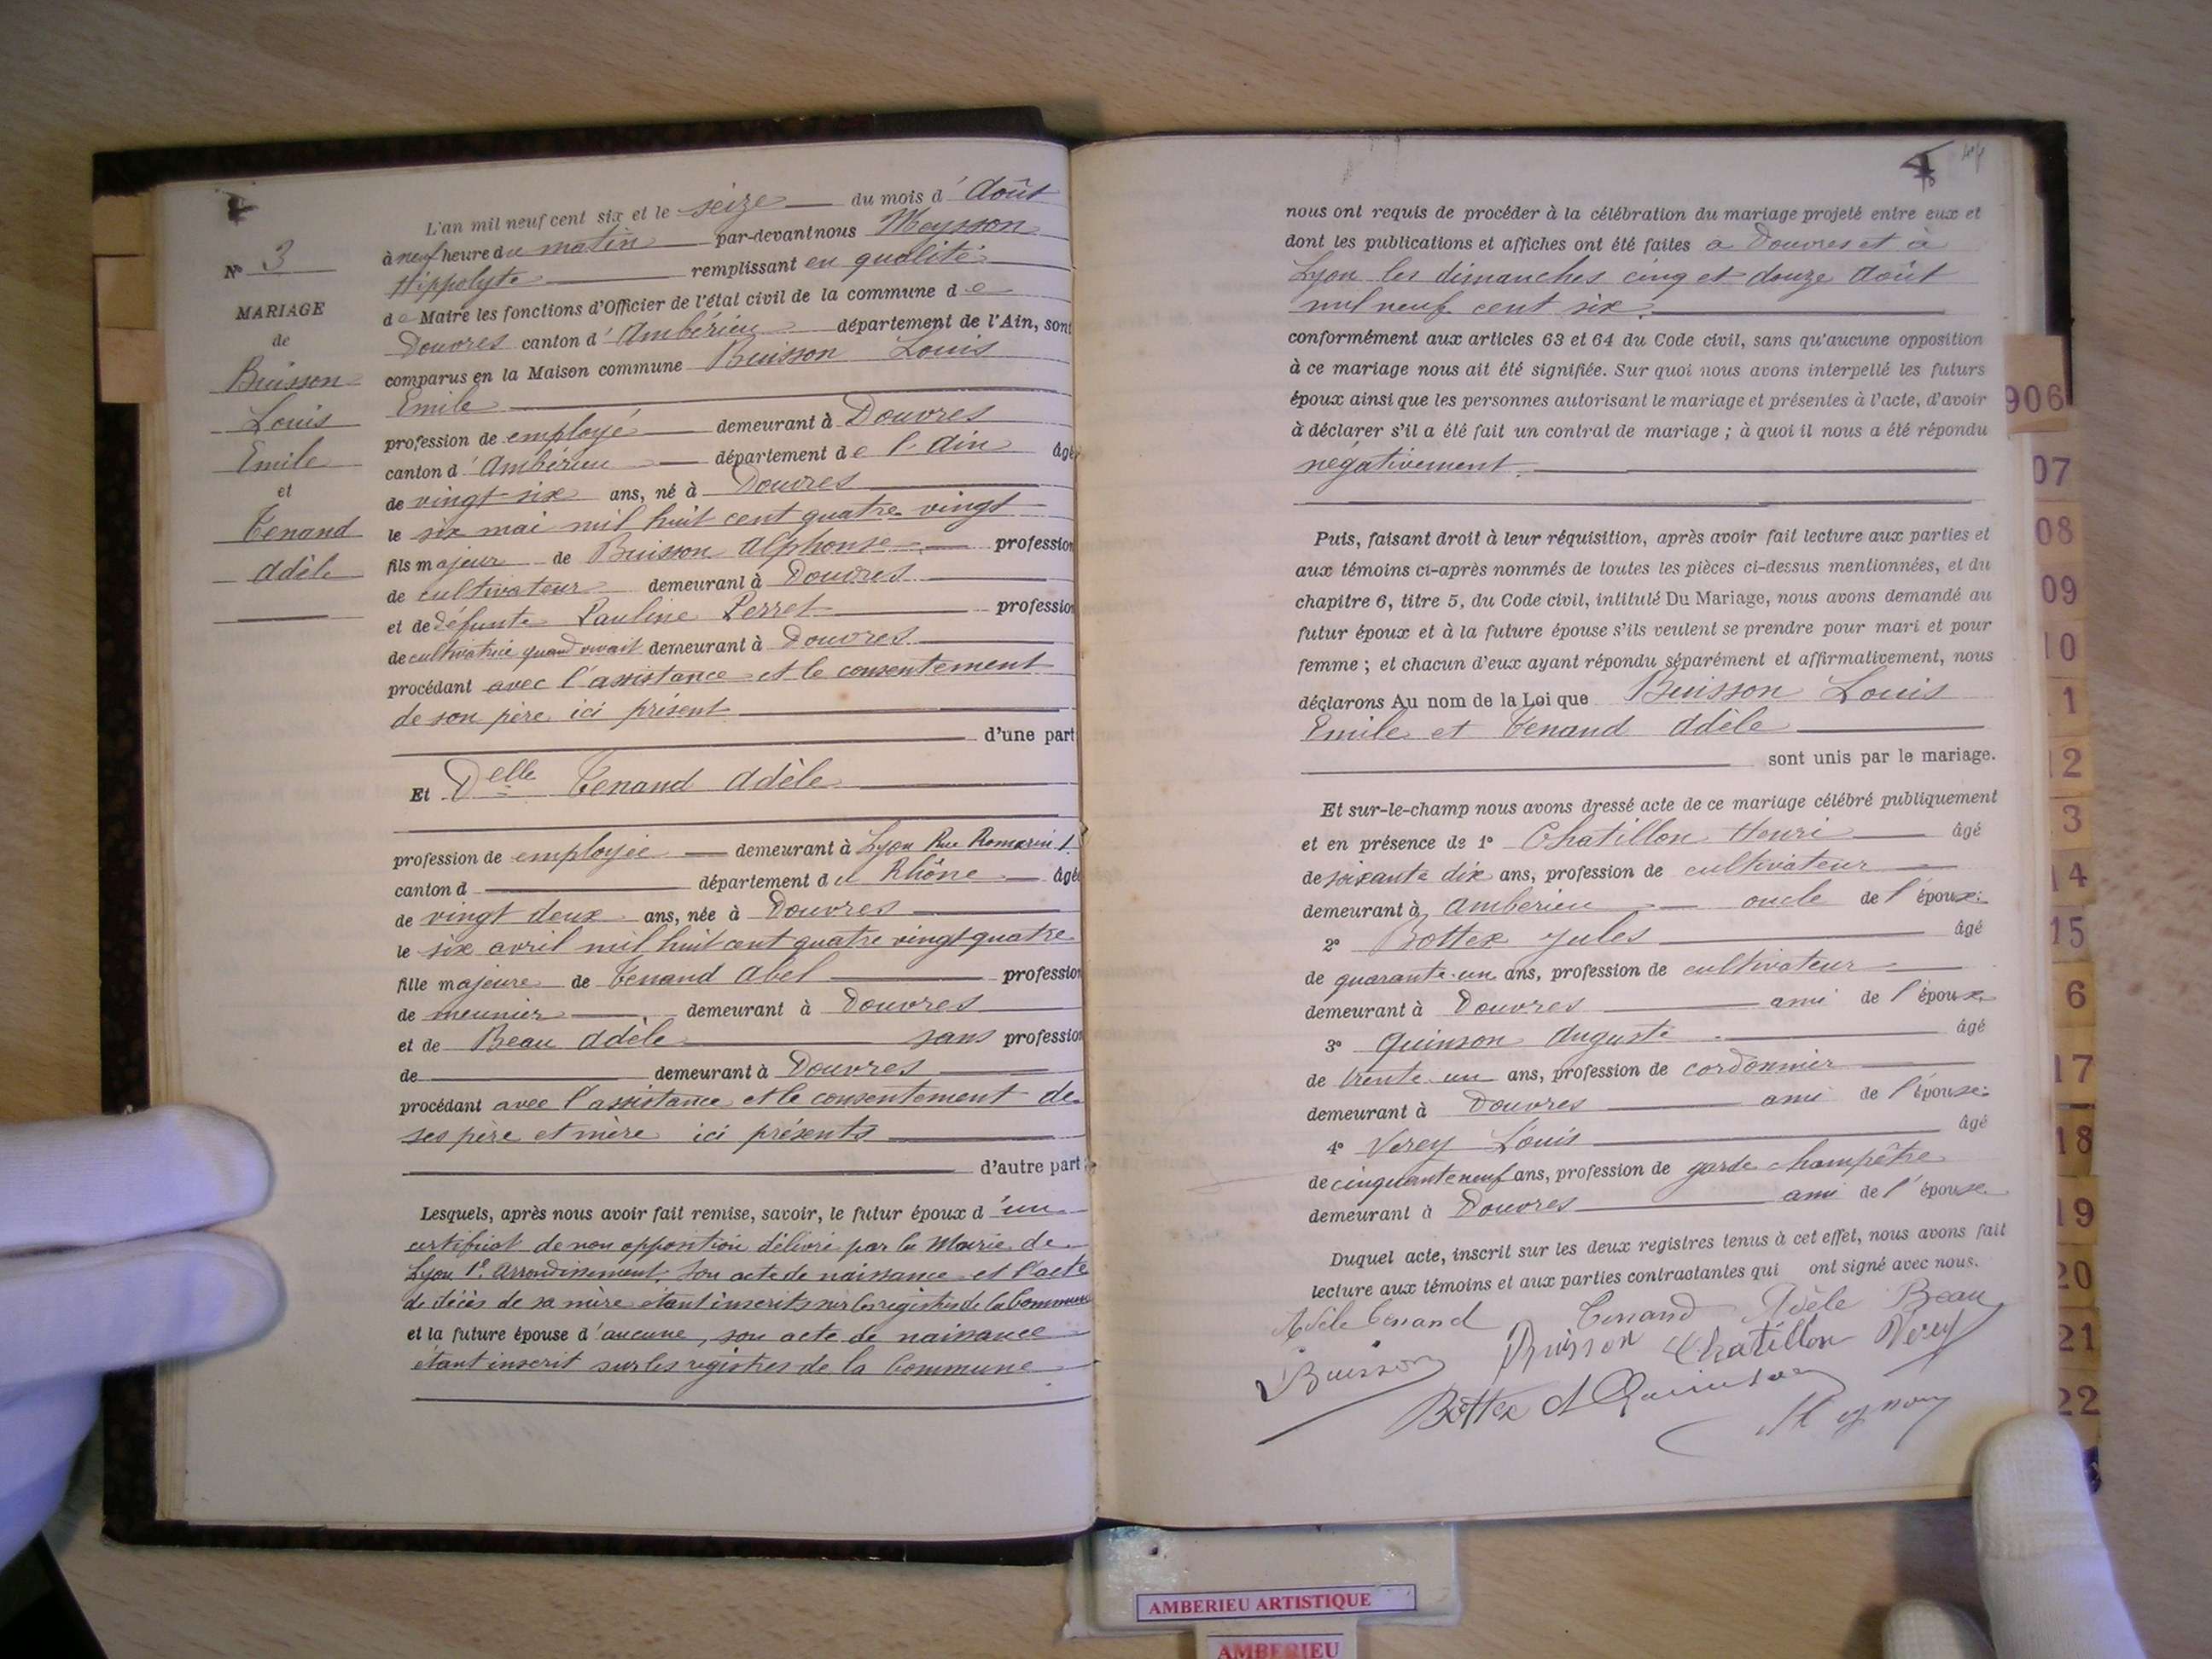 N° 3
MARIAGE
de
Buisson
Louis
Emile
et
Tenand
Adèle
L'an mil neuf cent six et le seize du mois d'Août
à neuf heure du matin par-devant nous Meysson
Hippolyte remplissant en qualité
de Maire les fonctions d'Officier de l'état civil de la commune de
Douvres canton d'Ambérieu département de l'Ain, sont
comparus en la Maison commune Buisson Louis
Emile
profession de employé demeurant à Douvres
canton d'Ambérieu département de l'Ain âgé
de vingt-six ans, né à Douvres
le six mai mil huit cent quatre-vingt
fils majeur de Buisson Alphonse profession
de cultivateur demeurant à Douvres
et de défunte Pauline Perret profession
de cultivatrice quand vivait demeurant à Douvres
procédant avec l'assistance et le consentement
de son père ici présent
d'une part
Et Delle Tenand Adèle
profession de employée demeurant à Lyon Rue Romarin 1
canton d département du Rhône âgée
de vingt deux ans, née à Douvres
le six avril mil huit cent quatre vingt quatre
fille majeure de Tenand Abel profession
de meunier demeurant à Douvres
et de Beau Adèle sans profession
de demeurant à Douvres
procédant avec l'assistance et le consentement de
ses père et mère ici présents
d'autre part
Lesquels, après nous avoir fait remise, savoir, le futur époux d'un
certificat de non opposition délivré par la Mairie de
Lyon 1er Arrondissement, son acte de naissance et l'acte
de décès de sa mère étant inscrits sur les registres de la Commune
et la future épouse d'aucune, son acte de naissance
étant inscrit sur les registres de la Commune
nous ont requis de procéder à la célébration du mariage projeté entre eux et
dont les publications et affiches ont été faites à Douvres et à
Lyon les dimanches cinq et douze Août
mil neuf cent six.
conformément aux articles 63 et 64 du Code civil, sans qu'aucune opposition
à ce mariage nous ait été signifiée. Sur quoi nous avons interpellé les futurs
époux ainsi que les personnes autorisant le mariage et présentes à l'acte, d'avoir
à déclarer s'il a été fait un contrat de mariage ; à quoi il nous a été répondu
négativement.
Puis, faisant droit à leur réquisition, après avoir fait lecture aux parties et
aux témoins ci-après nommés de toutes les pièces ci-dessus mentionnées, et du
chapitre 6, titre 5, du Code civil, intitulé Du Mariage, nous avons demandé au
futur époux et à la future épouse s'ils veulent se prendre pour mari et pour
femme ; et chacun d'eux ayant répondu séparément et affirmativement, nous
déclarons Au nom de la Loi que Buisson Louis
Emile et Tenand Adèle
sont unis par le mariage.
Et sur-le-champ nous avons dressé acte de ce mariage célébré publiquement
et en présence de 1° Chatillon Henri âgé
de soixante dix ans, profession de cultivateur
demeurant à Ambérieu oncle de l'époux.
2° Bottex Jules âgé
de quarante-un ans, profession de cultivateur
demeurant à Douvres ami de l'époux
3° Quinson Auguste âgé
de trente-un ans, profession de cordonnier
demeurant à Douvres ami de l'épouse.
4° Verey Louis âgé
de cinquante neuf ans, profession de garde champêtre
demeurant à Douvres ami de l'épouse
Duquel acte, inscrit sur les deux registres tenus à cet effet, nous avons fait
lecture aux témoins et aux parties contractantes qui ont signé avec nous.
Adèle Tenand Tenand Adèle Beau
Buisson Buisson Chatillon Verey
Bottex A Quinson
906
07
08
09
10
1
12
3
14
15
6
17
18
19
20
21
22
AMBERIEU ARTISTIQUE
AMBERIEU